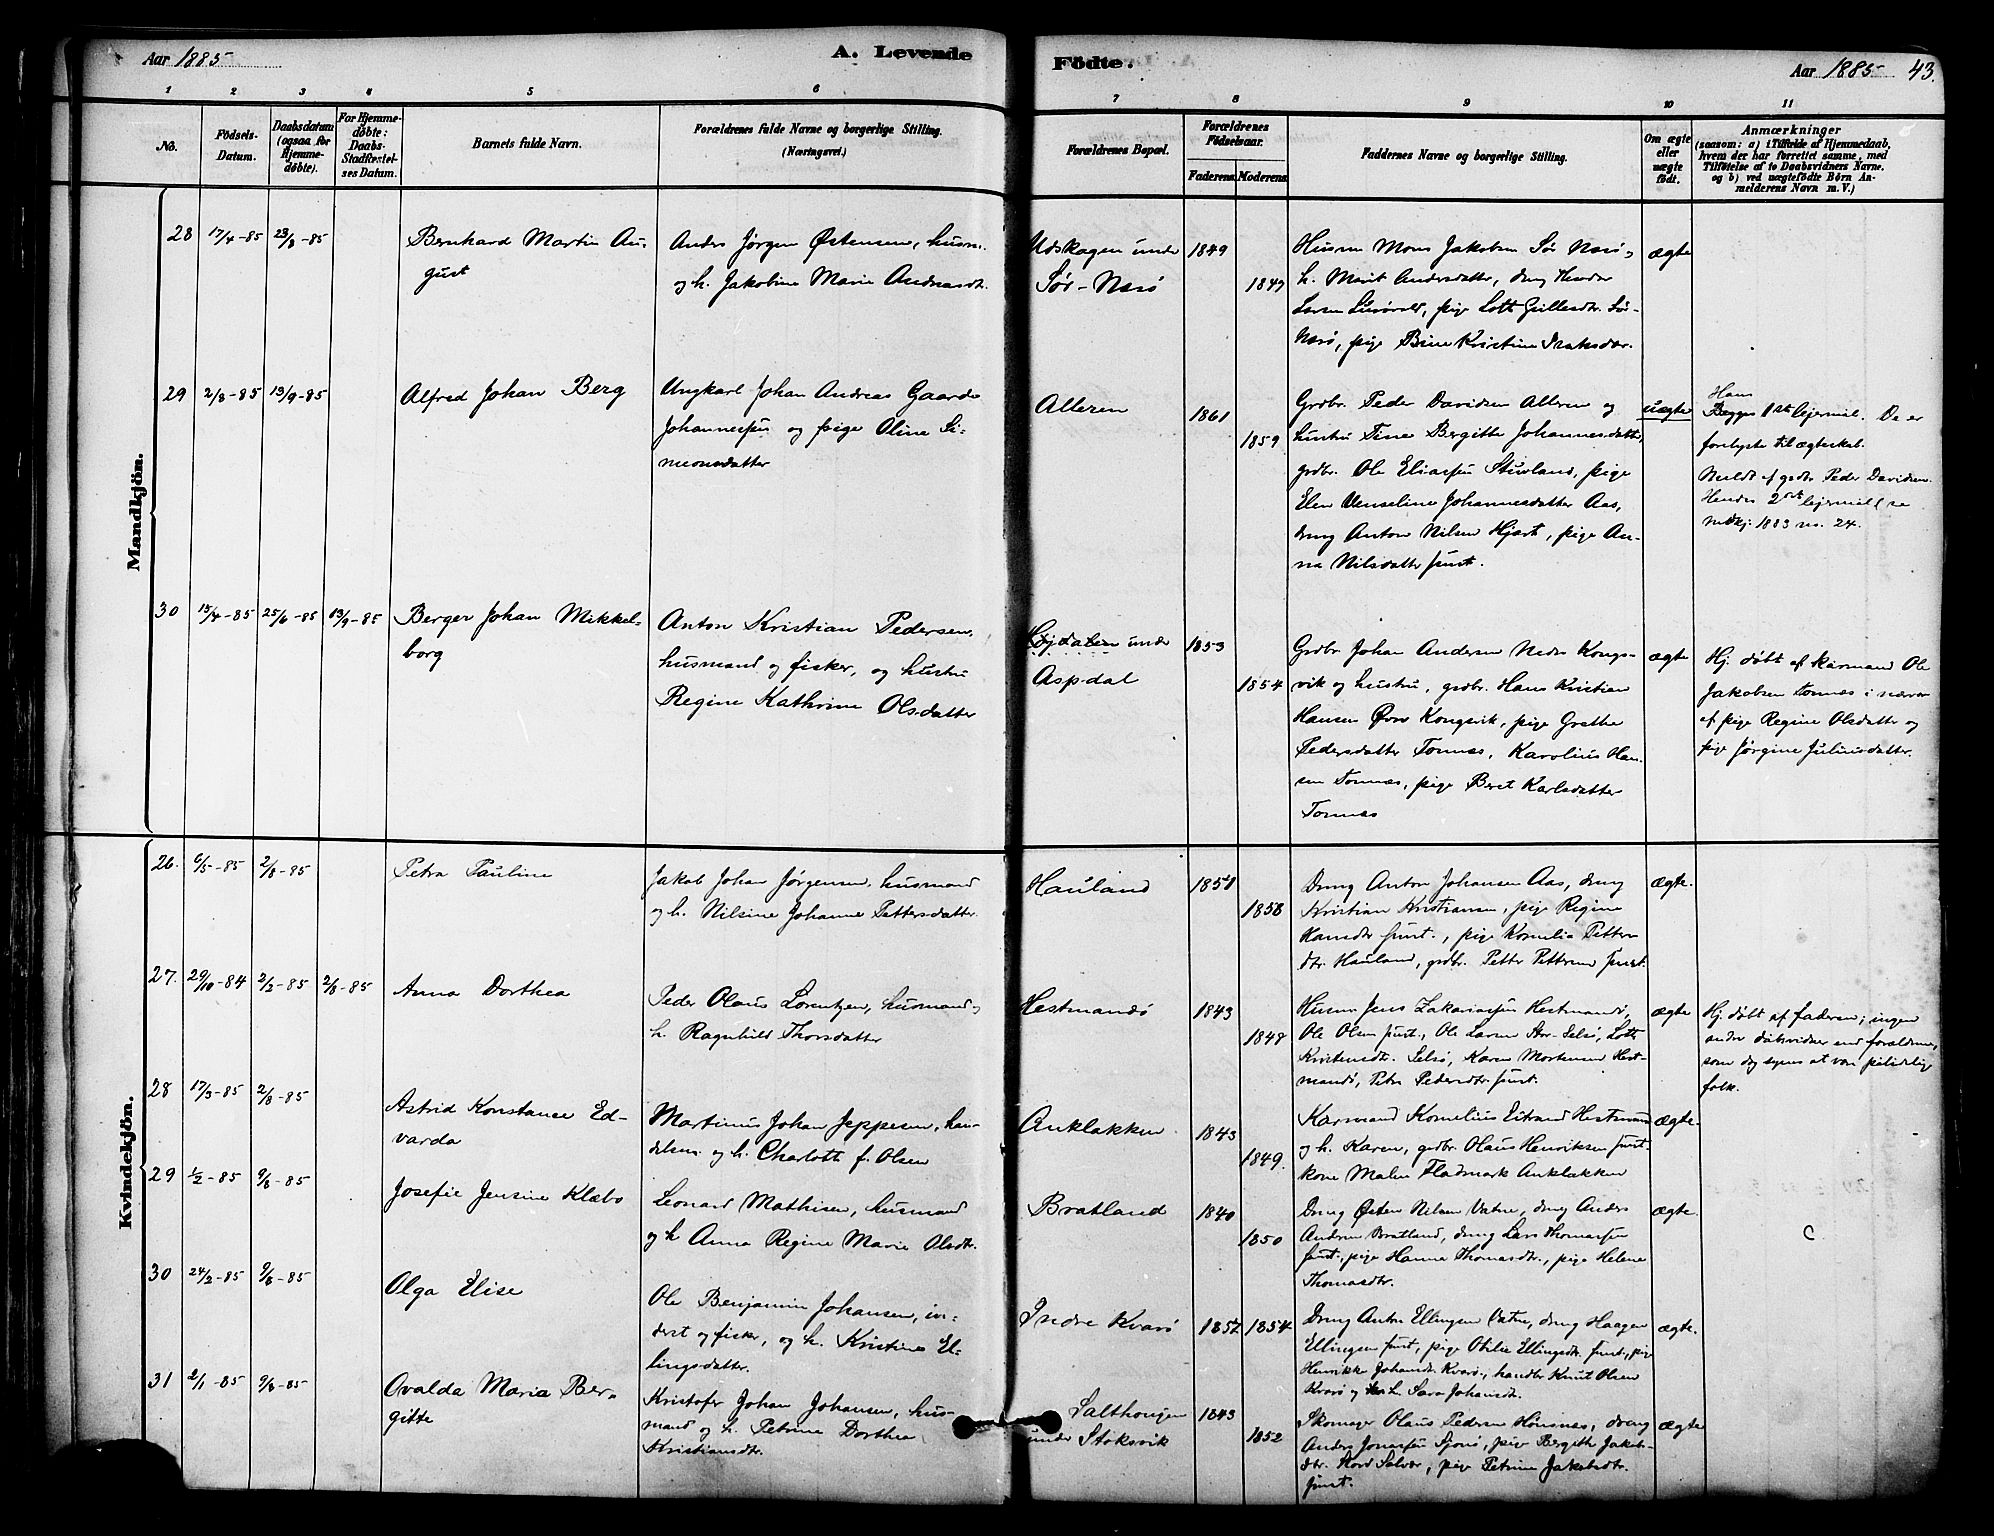 Aar 1885
A. Levende
Födte.
Aar 1885 43.
1 2 3 4 5 6 7 8 9 10 11
No.
Födsels-
Datum.
Daabsdatum
(ogsaa for
Hjemme-
döbte).
For Hjemme-
döbte:
Daabs-
Stadfæstel-
ses Datum.
Barnets fulde Navn.
Forældrenes fulde Navne og borgerlige Stilling.
(Næringsvei.)
Forældrenes Bopæl.
Forældrenes
Födselsaar.
Faderens. Moderens.
Faddernes Navne og borgerlige Stilling.
Om ægte
eller
uægte
født.
Anmærkninger
(saasom: a) i Tilfælde af Hjemmedaab,
hvem der har forrettet samme, med
Tilföielse af to Daabsvidners Navne,
og b) ved uægtefödte Börn An-
melderens Navn m. V.)
Mandkjön.
28 17/4-85 23/8-85
Bernhard Martin Au-
gust
Anders Jørgen Østensen, husm.
og h. Jakobine Marie Andreasdt.
Udskagen under
Sør-Nesø
1849
1849
Husm Mons Jakobsen Sør Nesø,
h. Marit Andersdatter, dreng
Larsen pige Lott Sør-
Nesø, pige Bine Kristine Isaksdtr.
ægte
29 2/8-85 13/9-85
Alfred Johan Berg
Ungkarl Johan Andreas Gaarde
Johannessen og pige Oline Si-
meonsdatter
Alteren
1861
1859
Grdbr. Peder Davidsen Alteren og
hustru Tina Bergitte Johannesdatter,
grdbr. Ole Eliassen Stuvland, pige
Elen Venseline Johannesdatter Aas,
dreng Anton Nilsen Hjart, pige An-
na Nilsdatter smst.
uægte
Hans
Begges 1ste lejermål. De er
forelyste til ægteskab.
Meldt af grdbr Peder Davidsen.
Hendes 2det lejermål (se
mdkj. 1883 no. 24.
30 15/4-85 25/6-85 13/9-85
Berger Johan Mikkel-
borg
Anton Kristian Pedersen,
husmand og fisker, og hustru
Regine Kathrine Olsdatter
Højdalen under
Aspdal
1853
1854
Grdbr Johan Andersen Nedre Kongs-
vik og hustru, grdbr. Hans Kristian
Hansen Øvre Kongsvik, pige Grethe
Pedersdatter Tonnes, Karolius Han-
sen Tonnes, pige Beret Karlsdatter
Tonnes
ægte
Hj. døbt af kårmand Ole
Jakobsen Tonnes i nærvær
af pige Regine Olsdatter og
pige Jørgine Juliusdatter.
Kvindekjön.
26. 6/5-85 2/8-85
Petra Pauline
Jakob Johan Jørgensen, husmand
og h. Nilsine Johanne Pettersdatter.
Hauland
1851
1858
Dreng Anton Johansen Aas, dreng
Kristian Kristiansen, pige Regine
Hansdtr smst., pige Kornelia Petter-
dtr. Hauland, grdbr. Petter Pettersen smst.
ægte.
27. 29/10-84 2/2-85 2/8-85
Anna Dorthea
Peder Olaus Lorentzen, husmand og
h. Ragnhild Thorsdatter
Hestmandø
1843
1848
Husm Jens Zakariassen Hestmandø,
Ole Olsen smst., Ole Larsen Selsø, Lott
Kristensdt. Selsø, Karen Mortensen Hest-
mandø, Petra Pedersdtr. smst.
ægte
Hj. døbt af faderen; ingen
andre dåbsvidner end forældrene,
som dog synes at være pålidelige
folk.
28 17/3-85 2/8-85
Astrid Konstanse Ed-
varda
Martinus Johan Jeppesen, han-
delsm. og h. Charlotte f. Olsen
Anklakken
1843
1849.
Kårmand Kornelius Hestmand
og h. Karen, grdbr. Olaus Henriksen smst.
kone Malen Fladmark Anklakken
ægte.
29 1/2-85 9/8-85
Josefie Jensine Klæbo
Leonard Mathisen, husmand
og h Anna Regine Marie Olsdtr.
Bratland
1840
1850
Dreng Østen Nilsen Vatne, dreng Anders
Andersen Bratland, dreng Lars Thomassen
smst., pige Hanna Thomasdtr., pige Helene
Thomasdtr.
ægte.
C
30 24/2-85 9/8-85
Olga Elise
Ole Benjamin Johansen, in-
derst og fisker, og h. Kristine El-
lingsdatter.
Indre Kvarø
1852 1854
Dreng Anton Ellingsen Vatne, dreng Haagen
Ellingsen smst, pige Otilie Ellingsdt. smst., pige
Henrikke Johansdt. Kvarø., handler Knut Olsen
Kvarø og h. Sara Johansdt.
ægte.
31 2/1-85 9/8-85
Ovalda Maria Ber-
gitte
Kristofer Johan Johansen, hus-
mand og h. Petrine Dorthea
Kristiansdt.
Salthougen
under Stoksvik
1843
1852
Skomager Olaus Pedersen Hønsnes, dreng
Anders Jonassen Sjonø, pige Bergitte Jakobs-
dtr. Nord Selvær, pige Petrine Jakobsdtr.
smst.
ægte